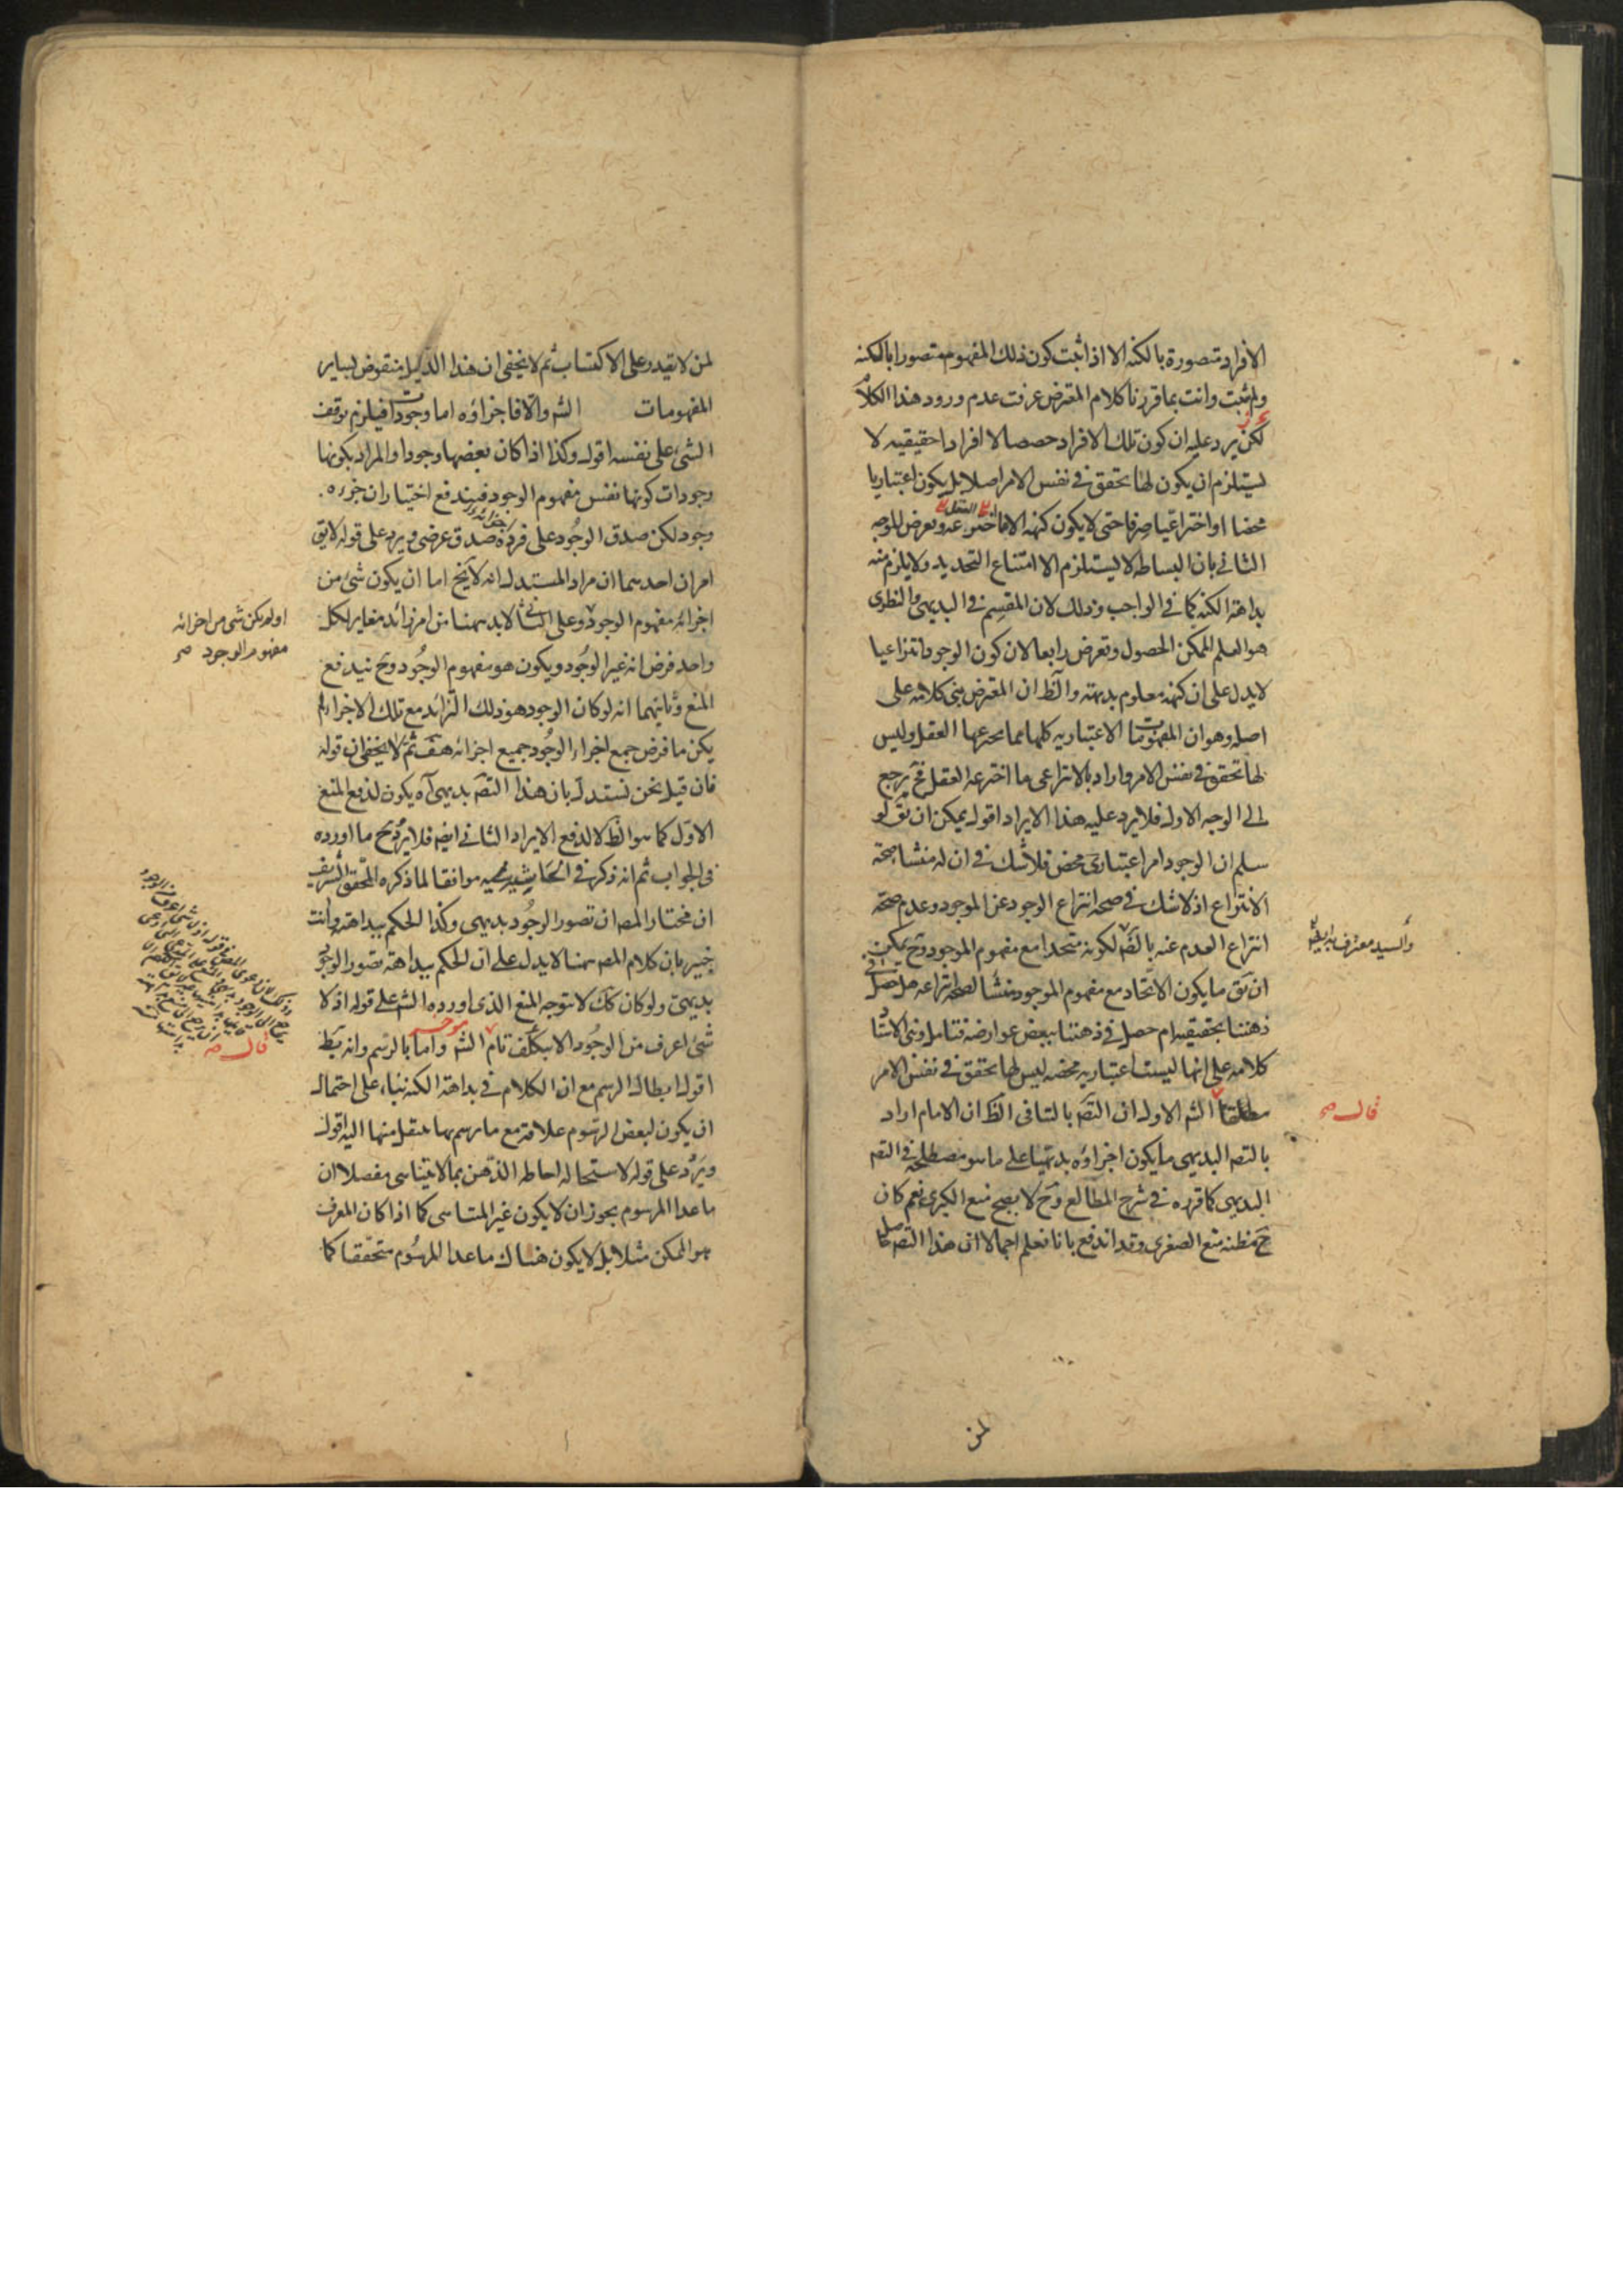 الافراد متصورة بالكنه الا اذا ثبت كون ذلك المفهوم متصورا بالكنه
ولم يثبت وانت بما قررنا كلام المعترض عرفت عدم ورود هذا الكلام
لكن يرد عليه ان كون تلك الافراد حصصا لا افرادا حقيقيه لا
يستلزم ان يكون لها تحقق في نفس الامر اصلا بل يكون اعتباريا
محضا او اختراعيا صرفا حتى لا يكون كنهه الا ما اخترعه العقل وتعرض للوجه
الثاني بان البساطه لا يستلزم الا امتناع التحديد ولا يلزم منه
بداهة الكنه كما في الواجب وذلك لان المقسم في البديهي والنظري
هو العلم الممكن الحصول وتعرض رابعا لان كون الوجود انتزاعيا
لا يدل على ان كنهه معلوم بديهته والظ ان المعترض بنى كلامه على
اصله وهو ان المفهومات الاعتباريه كلها مما يخترعها العقل وليس
لها تحقق في نفس الامر واراد بالانتزاعي ما اخترعه العقل فح يرجع
الى الوجه الاول فلا يرد عليه هذا الايراد اقول يمكن ان يق لو
سلم ان الوجود امر اعتباري محض فلا شك في ان له منشا صحة
الانتزاع اذ لا شك في صحه انتزاع الوجود عن الموجود وعدم صحة
انتزاع العدم عنه بالضم لكونه متحدا مع مفهوم الموجود وح يمكن
والسيد معترف به ايضا
ان يق ما يكون الاتحاد مع مفهوم الموجود منشأ لصحة انتزاعه هل حصل في
ذهننا بحقيقيه ام حصل في ذهننا ببعض عوارضه فتامل وبنى الاستا
كلامه على انها ليست اعتباريه محضه ليس لها تحقق في نفس الامر
مطلقا الش الاول ان التص بالتنافي الظ ان الامام اراد
قال صح
بالتص البديهي ما يكون اجزاؤه بديهيا على ما هو مصطلحه في التص
البديهي كما قرره في شرح المطالع وح لا يصح منع الكبرى نعم كان
ح مظنه منع الصغرى وقد اندفع بانا نعلم اجمالا ان هذا التص حاصل
لمن
لمن لا يقدر على الاكتساب ثم لا يخفى ان هذا الدليل منقوض بساير
المفهومات الش والا فاجزاؤه اما وجودات فيلزم توقف
الشئ على نفسه اقول وكذا اذا كان بعضها وجودا والمراد بكونها
وجودات كونها نفس مفهوم الوجود فيندفع اختيار ان جزءه
وجود لكن صدق الوجود على فرد اجزائه صدق عرضي ويرد على قوله لا يق
امران احدهما ان مراد المستدل انه لا يخ اما ان يكون شئ من
اجزائه مفهوم الوجود وعلى الثاني لا بد همنا من امر زائد مغاير لكل
او لم يكن شئ من اجزائه
مفهوم الوجود صح
واحد فرض انه غير الوجود ويكون هو مفهوم الوجود وح يندفع
المنع وثانيهما انه لو كان الوجود هو ذلك الزائد مع تلك الاجزاء لم
يكن ما فرض جميع اجزاء الوجود جميع اجزائه هف ثم لا يخفى ان قوله
فان قيل نحن نستدل بان هذا التص بديهي آه يكون لدفع المنع
الاول كما هو الظ لا لدفع الايراد الثاني ايض فلا يرد ح ما اورده
في الجواب ثم انه ذكر في الحاشيه موافقا لما ذكره المحقق الشريف
ان مختار المص ان تصور الوجود بديهي وكذا الحكم ببداهته وانت
خبير بان كلام المص همنا لا يدل على ان الحكم ببداهة تصور الوجود
بديهي ولو كان كك لا يتوجه المنع الذي اورده الش على قوله اذ لا
شئ اعرف من الوجود الا بتكلف تام الش واما بالرسم وانه يط
قال صح
اقول ابطال الرسم مع ان الكلام في بداهة الكنه بناء على احتمال
ان يكون لبعض الرسوم علاقة مع ما رسم بها ينتقل منها اليه اقول
ويرد على قوله لاستحاله احاطه الذهن بما لا يتناهى مفصلا ان
ما عدا المرسوم يجوز ان لا يكون غير المتناهى كما اذا كان المعرف
هو الممكن مثلا بل لا يكون هناك ما عدا المرسوم متحققا كما